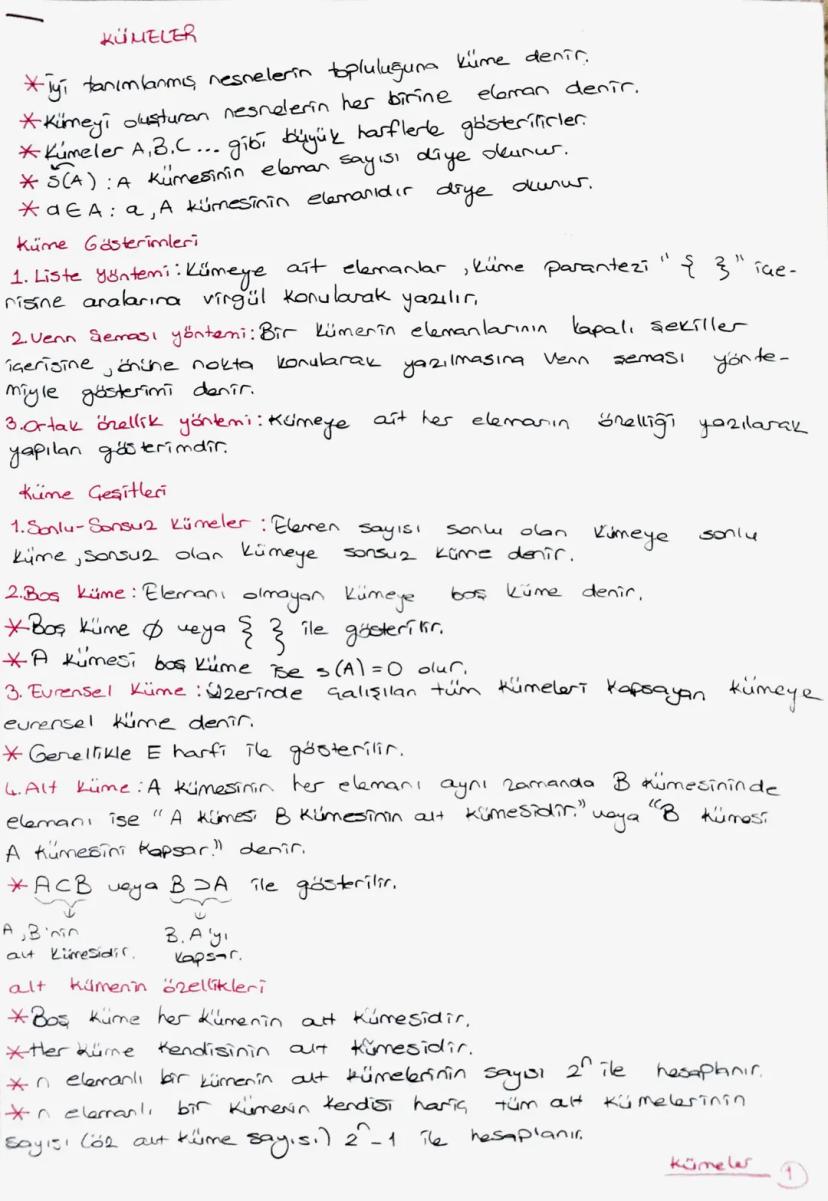 KÜMELER
* İyi tanımlanmış nesnelerin topluluğuna küme denir.
* Kümeyi oluşturan nesnelerin her birine eleman denir.
* Kümeler A,B,C... gibi büyük harflerle gösterilirler.
* s(A) : A kümesinin eleman sayısı diye okunur.
* a∈A : a, A kümesinin elemanıdır diye okunur.
Küme Gösterimleri
1. Liste yöntemi: Kümeye ait elemanlar, küme parantezi "{ }" içe-
risine aralarına virgül konularak yazılır.
2. Venn Şeması yöntemi: Bir kümenin elemanlarının kapalı şekiller
içerisine, önüne nokta konularak yazılmasına Venn şeması yönte-
miyle gösterimi denir.
3. Ortak özellik yöntemi: Kümeye ait her elemanın özelliği yazılarak
yapılan gösterimdir.
Küme Çeşitleri
1. Sonlu-Sonsuz Kümeler : Elemen sayısı sonlu olan kümeye sonlu
küme, sonsuz olan kümeye sonsuz küme denir.
2. Boş Küme: Elemanı olmayan kümeye boş küme denir.
* Boş küme ∅ veya { } ile gösterilir.
* A kümesi boş küme ise s(A)=0 olur.
3. Evrensel Küme : Üzerinde çalışılan tüm kümeleri kapsayan kümeye
evrensel küme denir.
* Genellikle E harfi ile gösterilir.
4. Alt Küme : A kümesinin her elemanı aynı zamanda B kümesininde
elemanı ise "A kümesi B kümesinin alt kümesidir." veya "B kümesi
A kümesini kapsar." denir.
* A⊂B veya B⊃A ile gösterilir.
A, B'nin B, A'yı
alt kümesidir. kapsar.
alt kümenin özellikleri
* Boş küme her kümenin alt kümesidir.
* Her küme kendisinin alt kümesidir.
* n elemanlı bir kümenin alt kümelerinin sayısı 2ⁿ ile hesaplanır.
* n elemanlı bir kümenin kendisi hariç tüm alt kümelerinin
sayısı (öz alt küme sayısı) 2ⁿ-1 ile hesaplanır.
Kümeler 1